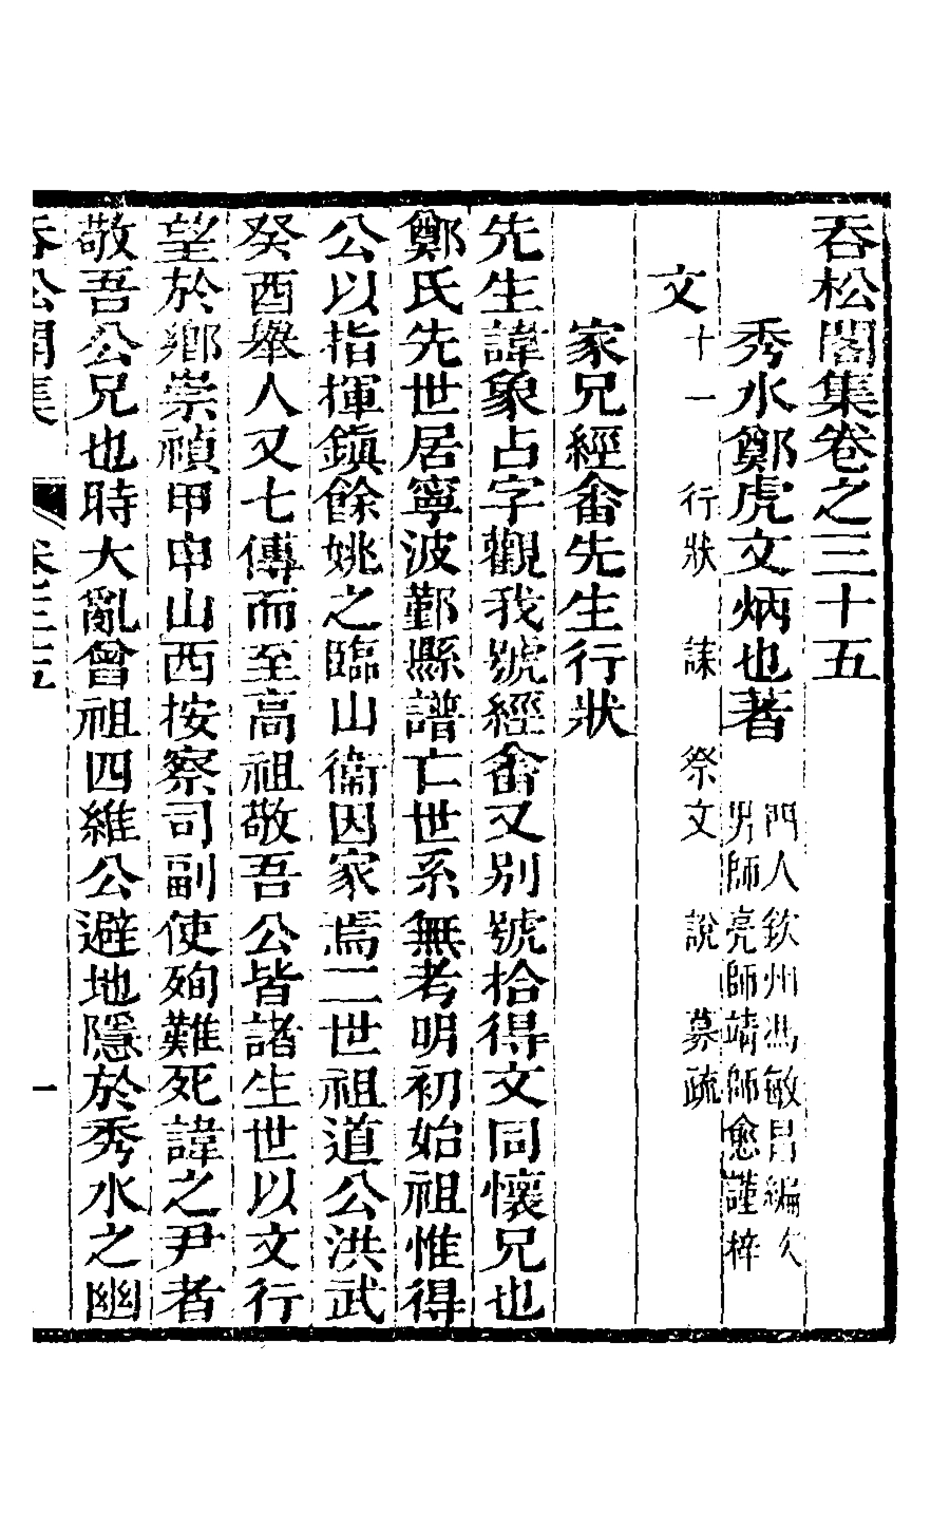 吞松閣集卷之三十五
秀水鄭虎文炳也著
門人欽州馮敏昌編次
男師亮師靖師愈謹梓
文
十一 行狀 誄 祭文 說 募疏
家兄經畬先生行狀
先生諱象占字觀我號經畬又別號拾得文同懷兄也
鄭氏先世居寧波鄞縣譜亡世系無考明初始祖惟得
公以指揮鎭餘姚之臨山衞因家焉二世祖道公洪武
癸酉舉人又七傳而至高祖敬吾公皆諸生世以文行
望於鄉崇禎甲申山西按察司副使殉難死諱之尹者
敬吾公兄也時大亂曾祖四維公避地隱於秀水之幽
吞松閣集 卷三十五 一